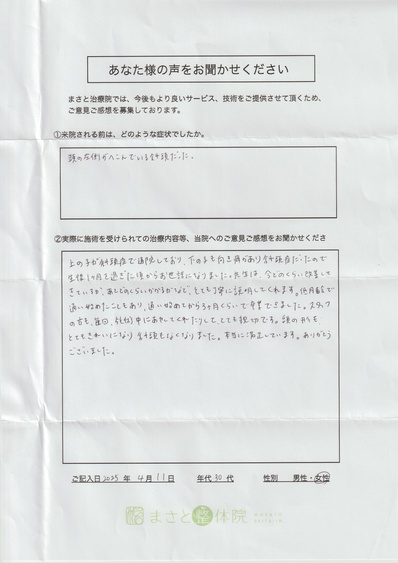 あなた様の声をお聞かせください
まさと治療院では、今後もより良いサービス、技術をご提供させて頂くため、
ご意見ご感想を募集しております。
①来院される前は、どのような症状でしたか。
頭の右側がへこんでいる斜頭だった。
②実際に施術を受けられての治療内容等、当院へのご意見ご感想をお聞かせくださ
上の子が斜頭症で通院しており、下の子も向き癖があり斜頭症だったので
生後1ヶ月を過ぎた頃からお世話になりました。先生は、今どのくらい改善して
きているか、あとどのくらいかかるかなど、とても丁寧に説明してくれます。低月齢で
通い始めたこともあり、通い始めてから3ヶ月くらいで卒業できました。スタッフ
の方も、毎回、施術中にあやしてくれたりして、とても親切です。頭の形も
とてもきれいになり斜頭もなくなりました。本当に満足しています。ありがとう
ございました。
ご記入日2025 年 4月11日 年代30代 性別 男性・女性
まさと整体院